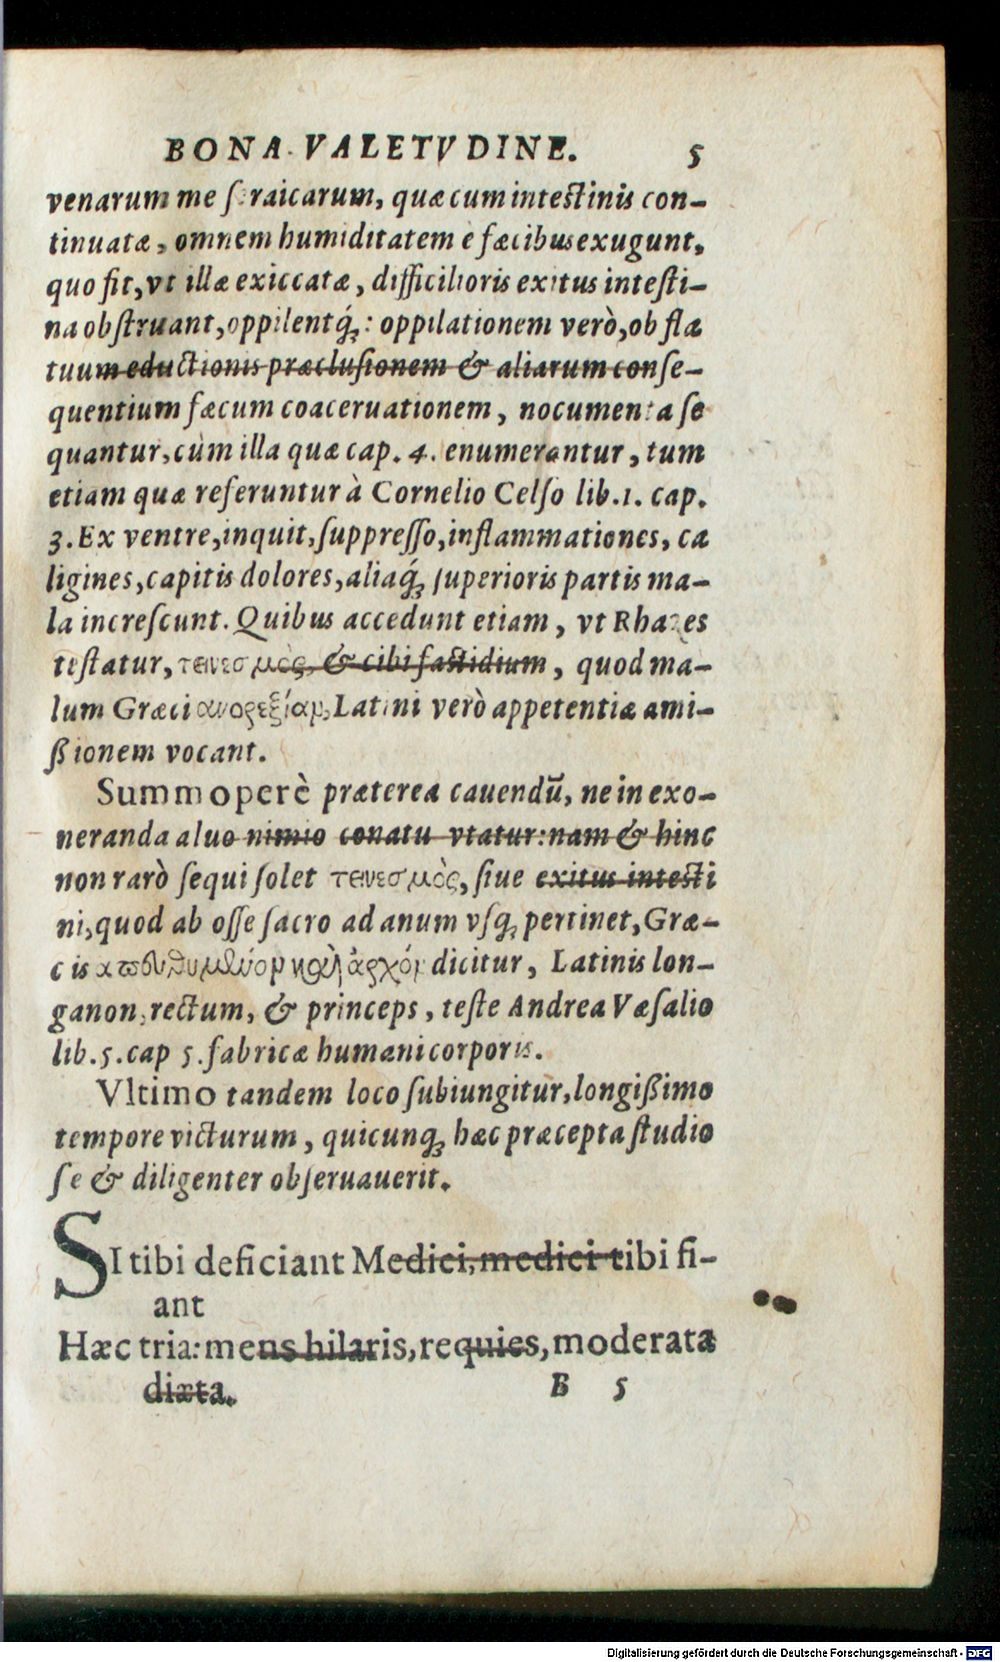 BONA VALETVDINE. 5
venarum meſeraicarum, quæ cum intestinis con-
tinuatæ, omnem humiditatem è fæcibus exugunt,
quo fit, vt illæ exiccatæ, difficilioris exitus inteſti-
na obſtruant, oppilentq́;: oppilationem verò, ob fla
tuum eductionis præcluſionem & aliarum conſe-
quentium fæcum coaceruationem, nocumenta ſe
quantur, cùm illa quæ cap. 4. enumerantur, tum
etiam quæ referuntur à Cornelio Celſo lib. 1. cap.
3. Ex ventre, inquit, ſuppreſſo, inflammationes, ca
ligines, capitis dolores, aliaq́; ſuperioris partis ma-
la increſcunt. Quibus accedunt etiam, vt Rhazes
teſtatur, τεινεσμὸς, & cibi faſtidium, quod ma-
lum Græci ανορεξίαν, Latini verò appetentiæ ami-
ßionem vocant.
Summoperè præterea cauendū, ne in exo-
neranda aluo nimio conatu vtatur: nam & hinc
non rarò ſequi ſolet τεινεσμὸς, ſiue exitus inteſti
ni, quod ab oſſe ſacro ad anum vſq; pertinet, Græ-
cis ἀρχόν dicitur, Latinis lon-
ganon, rectum, & princeps, teſte Andrea Væſalio
lib. 5. cap 5. fabricæ humani corporis.
Vltimo tandem loco ſubiungitur, longißimo
tempore victurum, quicunq; hæc præcepta ſtudio
ſe & diligenter obſeruauerit.
SI tibi deficiant Medici, medici tibi fi-
ant
Hæc tria: mens hilaris, requies, moderata
diæta.
B 5
Digitalisierung gefördert durch die Deutsche Forschungsgemeinschaft - DFG